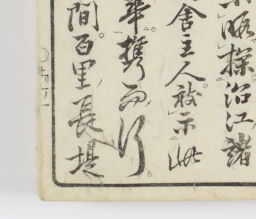 略探沿江諸
舍主人被示此
華携而行
間百里長堤